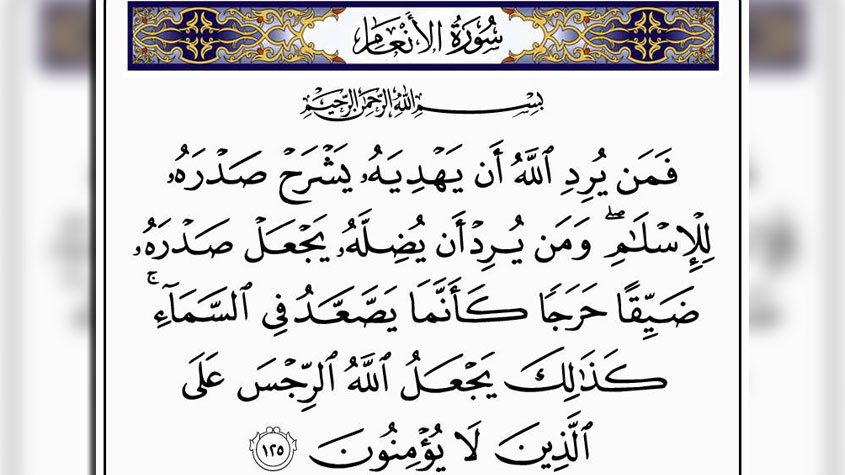 سُورَةُ الأَنْعَام
بِسْمِ اللَّهِ الرَّحْمَٰنِ الرَّحِيمِ
فَمَن يُرِدِ ٱللَّهُ أَن يَهْدِيَهُۥ يَشْرَحْ صَدْرَهُۥ
لِلْإِسْلَٰمِ ۖ وَمَن يُرِدْ أَن يُضِلَّهُۥ يَجْعَلْ صَدْرَهُۥ
ضَيِّقًا حَرَجًا كَأَنَّمَا يَصَّعَّدُ فِى ٱلسَّمَآءِ ۚ
كَذَٰلِكَ يَجْعَلُ ٱللَّهُ ٱلرِّجْسَ عَلَى
ٱلَّذِينَ لَا يُؤْمِنُونَ ١٢٥